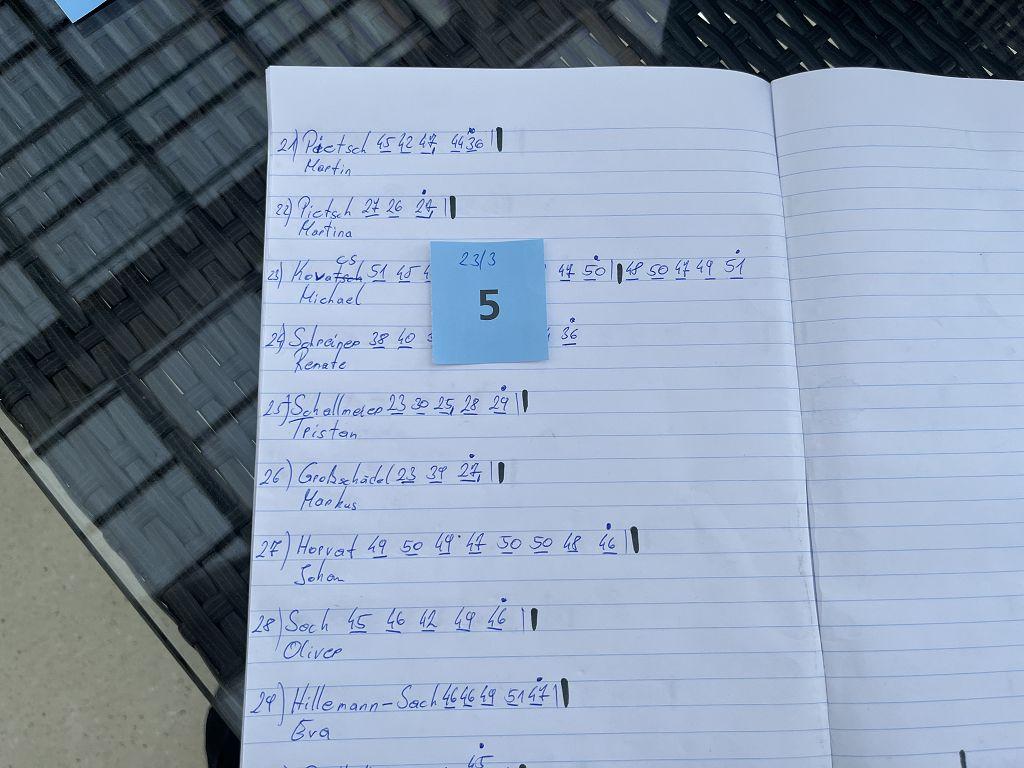 21) Pietsch 45 42 47 44 36
Martin
22) Pietsch 27 26 24
Martina
cs
23) Kovatsch 51 48 47 50 48 50 47 49 51
Michael
23/3
5
24) Schreiner 38 40 36
Renate
25) Schallmeier 23 30 25 28 29
Tristan
26) Großschädel 23 39 27
Markus
27) Horvat 49 50 49 47 50 50 48 46
Johan
28) Sach 45 46 42 49 46
Oliver
29) Hillemann-Sach 46 46 49 51 47
Eva
45